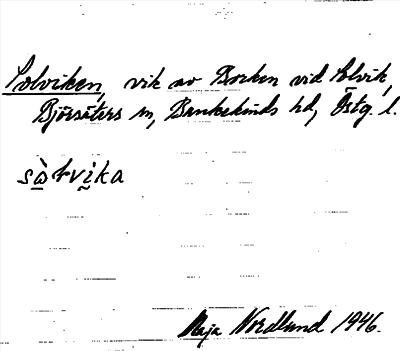 Solviken, vik av Borken vid Solvik,
Björsäters sn, Bankekinds hd, Östg. l.
Maja Nordlund 1946.